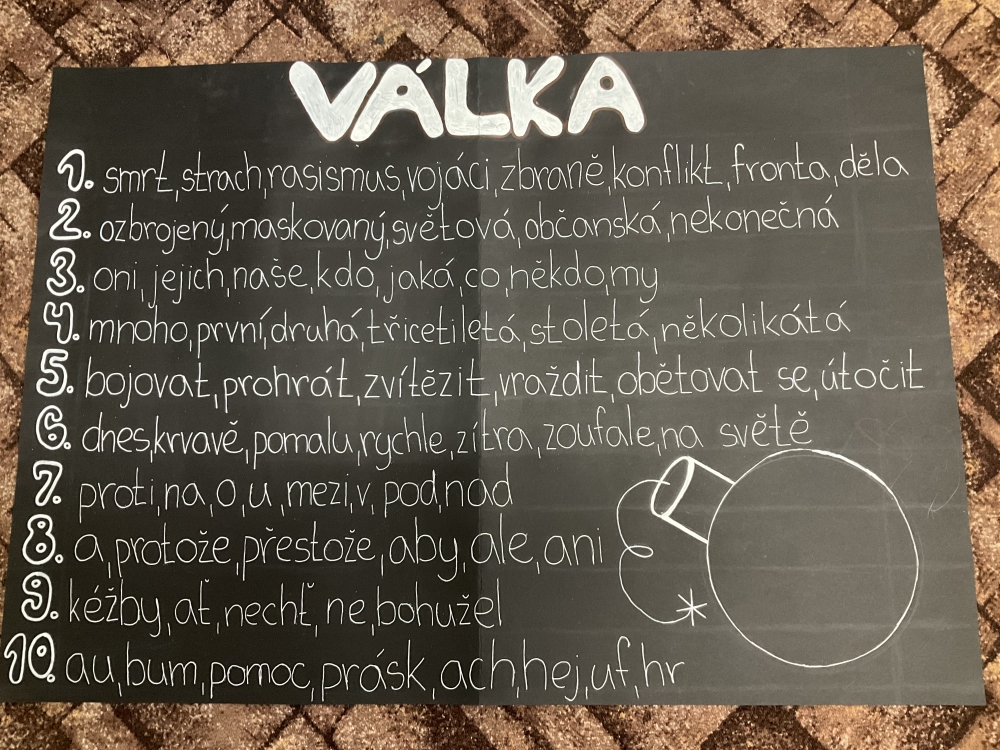 VÁLKA
1. smrt, strach, rasismus, vojáci, zbraně, konflikt, fronta, děla
2. ozbrojený, maskovaný, světová, občanská, nekonečná
3. oni, jejich, naše, kdo, jaká, co, někdo, my
4. mnoho, první, druhá, třicetiletá, stoletá, několikátá
5. bojovat, prohrát, zvítězit, vraždit, obětovat se, útočit
6. dnes, krvavě, pomalu, rychle, zítra, zoufale, na světě
7. proti, na, o, u, mezi, v, pod, nad
8. a, protože, přestože, aby, ale, ani
9. kéžby, ať, nechť, ne, bohužel
10. au, bum, pomoc, prásk, ach, hej, uf, hr